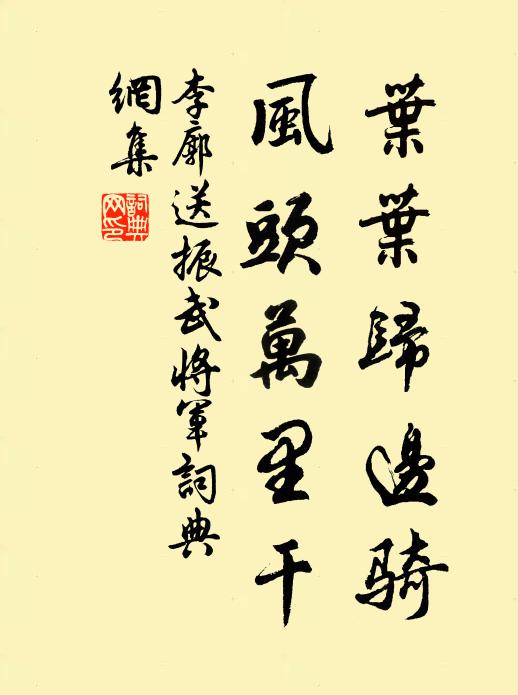 葉葉歸邊騎
風頭萬里干
李廓送振武將軍詞典
網集
詞典網印